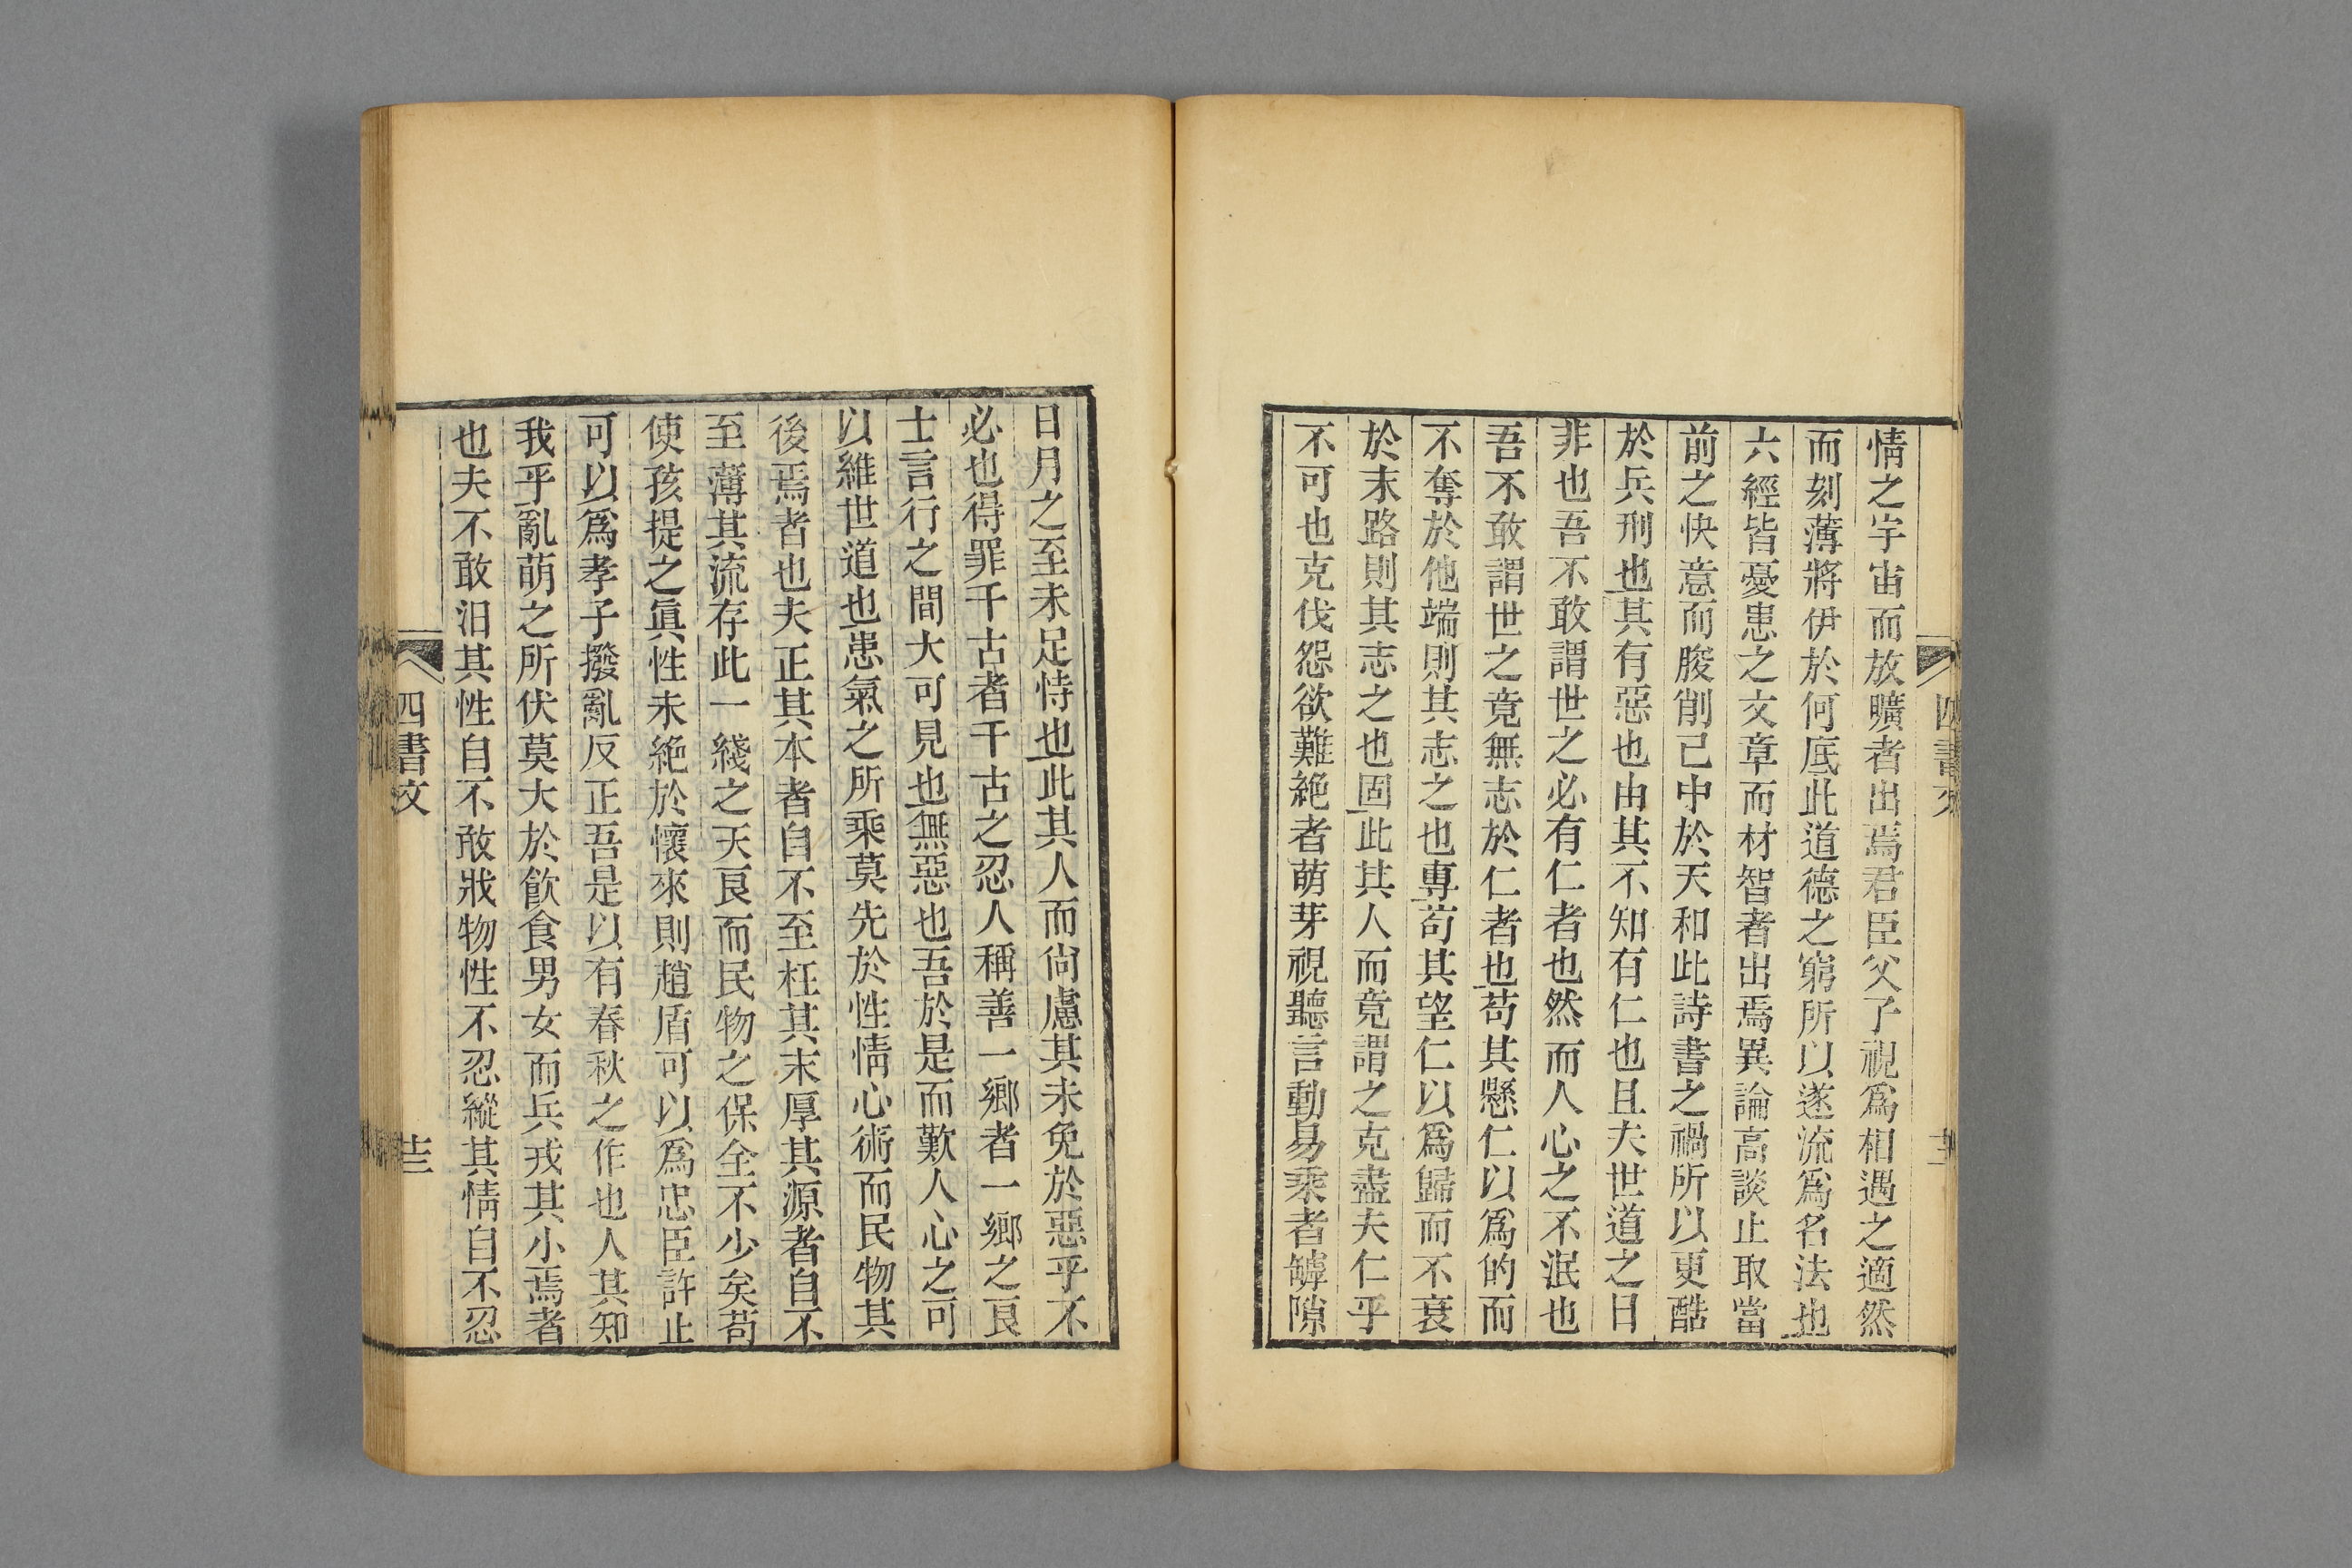 情之宇宙而放曠者出焉君臣父子視爲相遇之適然
而刻薄將伊於何底此道德之窮所以遂流爲名法也
六經皆憂患之文章而材智者出焉異論高談止取當
前之快意而朘削己中於天和此詩書之禍所以更酷
於兵刑也其有惡也由其不知有仁也且夫世道之日
非也吾不敢謂世之必有仁者也然而人心之不泯也
吾不敢謂世之竟無志於仁者也苟其懸仁以爲的而
不奪於他端則其志之也專苟其望仁以爲歸而不衰
於末路則其志之也固此其人而竟謂之克盡夫仁乎
不可也克伐怨欲難絶者萌芽視聽言動易乘者罅隙
日月之至未足恃也此其人而尙慮其未免於惡乎不
必也得罪千古者千古之忍人稱善一鄉者一鄉之良
士言行之間大可見也無惡也吾於是而歎人心之可
以維世道也患氣之所乘莫先於性情心術而民物其
後焉者也夫正其本者自不至枉其末厚其源者自不
至薄其流存此一綫之天良而民物之保全不少矣苟
使孩提之眞性未絶於懷來則趙盾可以爲忠臣許止
可以爲孝子撥亂反正吾是以有春秋之作也人其知
我乎亂萌之所伏莫大於飮食男女而兵戎其小焉者
也夫不敢汨其性自不敢戕物性不忍縱其情自不忍
四書文